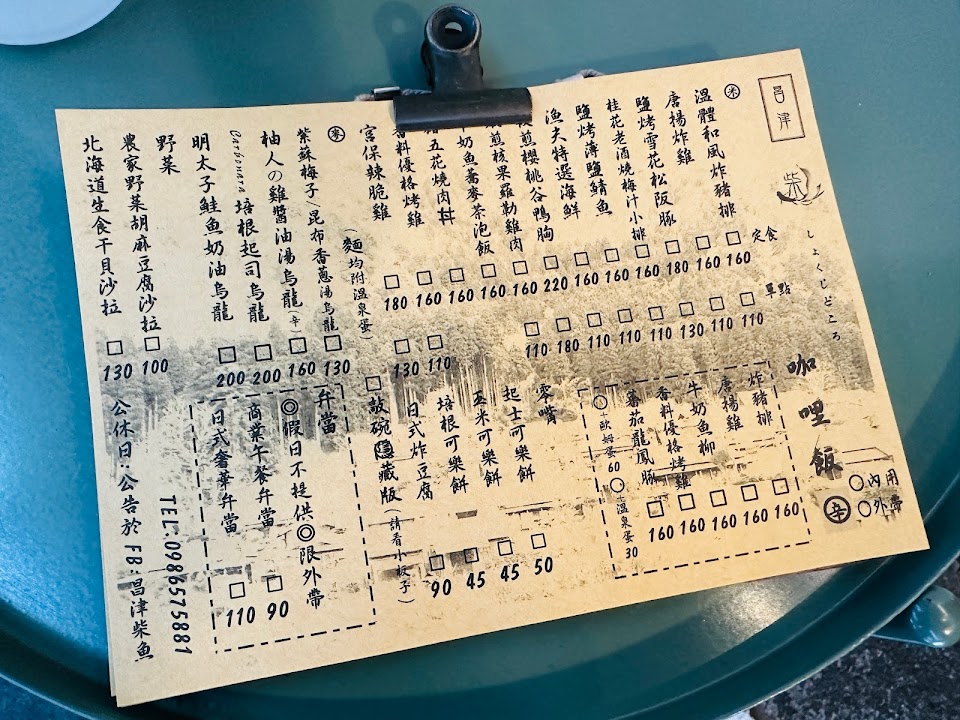 昌津
柴
しょくじどころ
咖哩飯
辛
○內用
○外帶
米
定食
單點
溫體和風炸豬排 □160 □110
唐揚炸雞 □160 □110
鹽烤雪花松阪豚 □180 □130
桂花老酒燒梅汁小排 □160 □110
鹽烤薄鹽鯖魚 □160 □110
漁夫特選海鮮 □160 □110
煎櫻桃谷鴨胸 □220 □180
煎核果羅勒雞肉 □160 □110
奶魚蕎麥茶泡飯 □160
五花燒肉丼 □160
料優格烤雞 □160 □110
宮保辣脆雞 □180 □130
炸豬排 □160
唐揚雞 □160
牛奶魚柳 □160
香料優格烤雞 □160
蕃茄龍鳳豚 □160
○+歐姆蛋60 ○+溫泉蛋30
零嘴 □50
起士可樂餅 □45
玉米可樂餅 □45
培根可樂餅 □90
日式炸豆腐
□敲碗隱藏版(請看小板子)
麥
(麵均附溫泉蛋)
紫蘇梅子/昆布香蔥湯烏龍 □130
柚人の雞醬油湯烏龍(辛) □160
Carbonara 培根起司烏龍 □200
明太子鮭魚奶油烏龍 □200
弁當
◎假日不提供◎限外帶
商業午餐弁當 □90
日式奢華弁當 □110
野菜
農家野菜胡麻豆腐沙拉 □100
北海道生食干貝沙拉 □130
TEL:0986575881
公休日:公告於FB:昌津柴魚